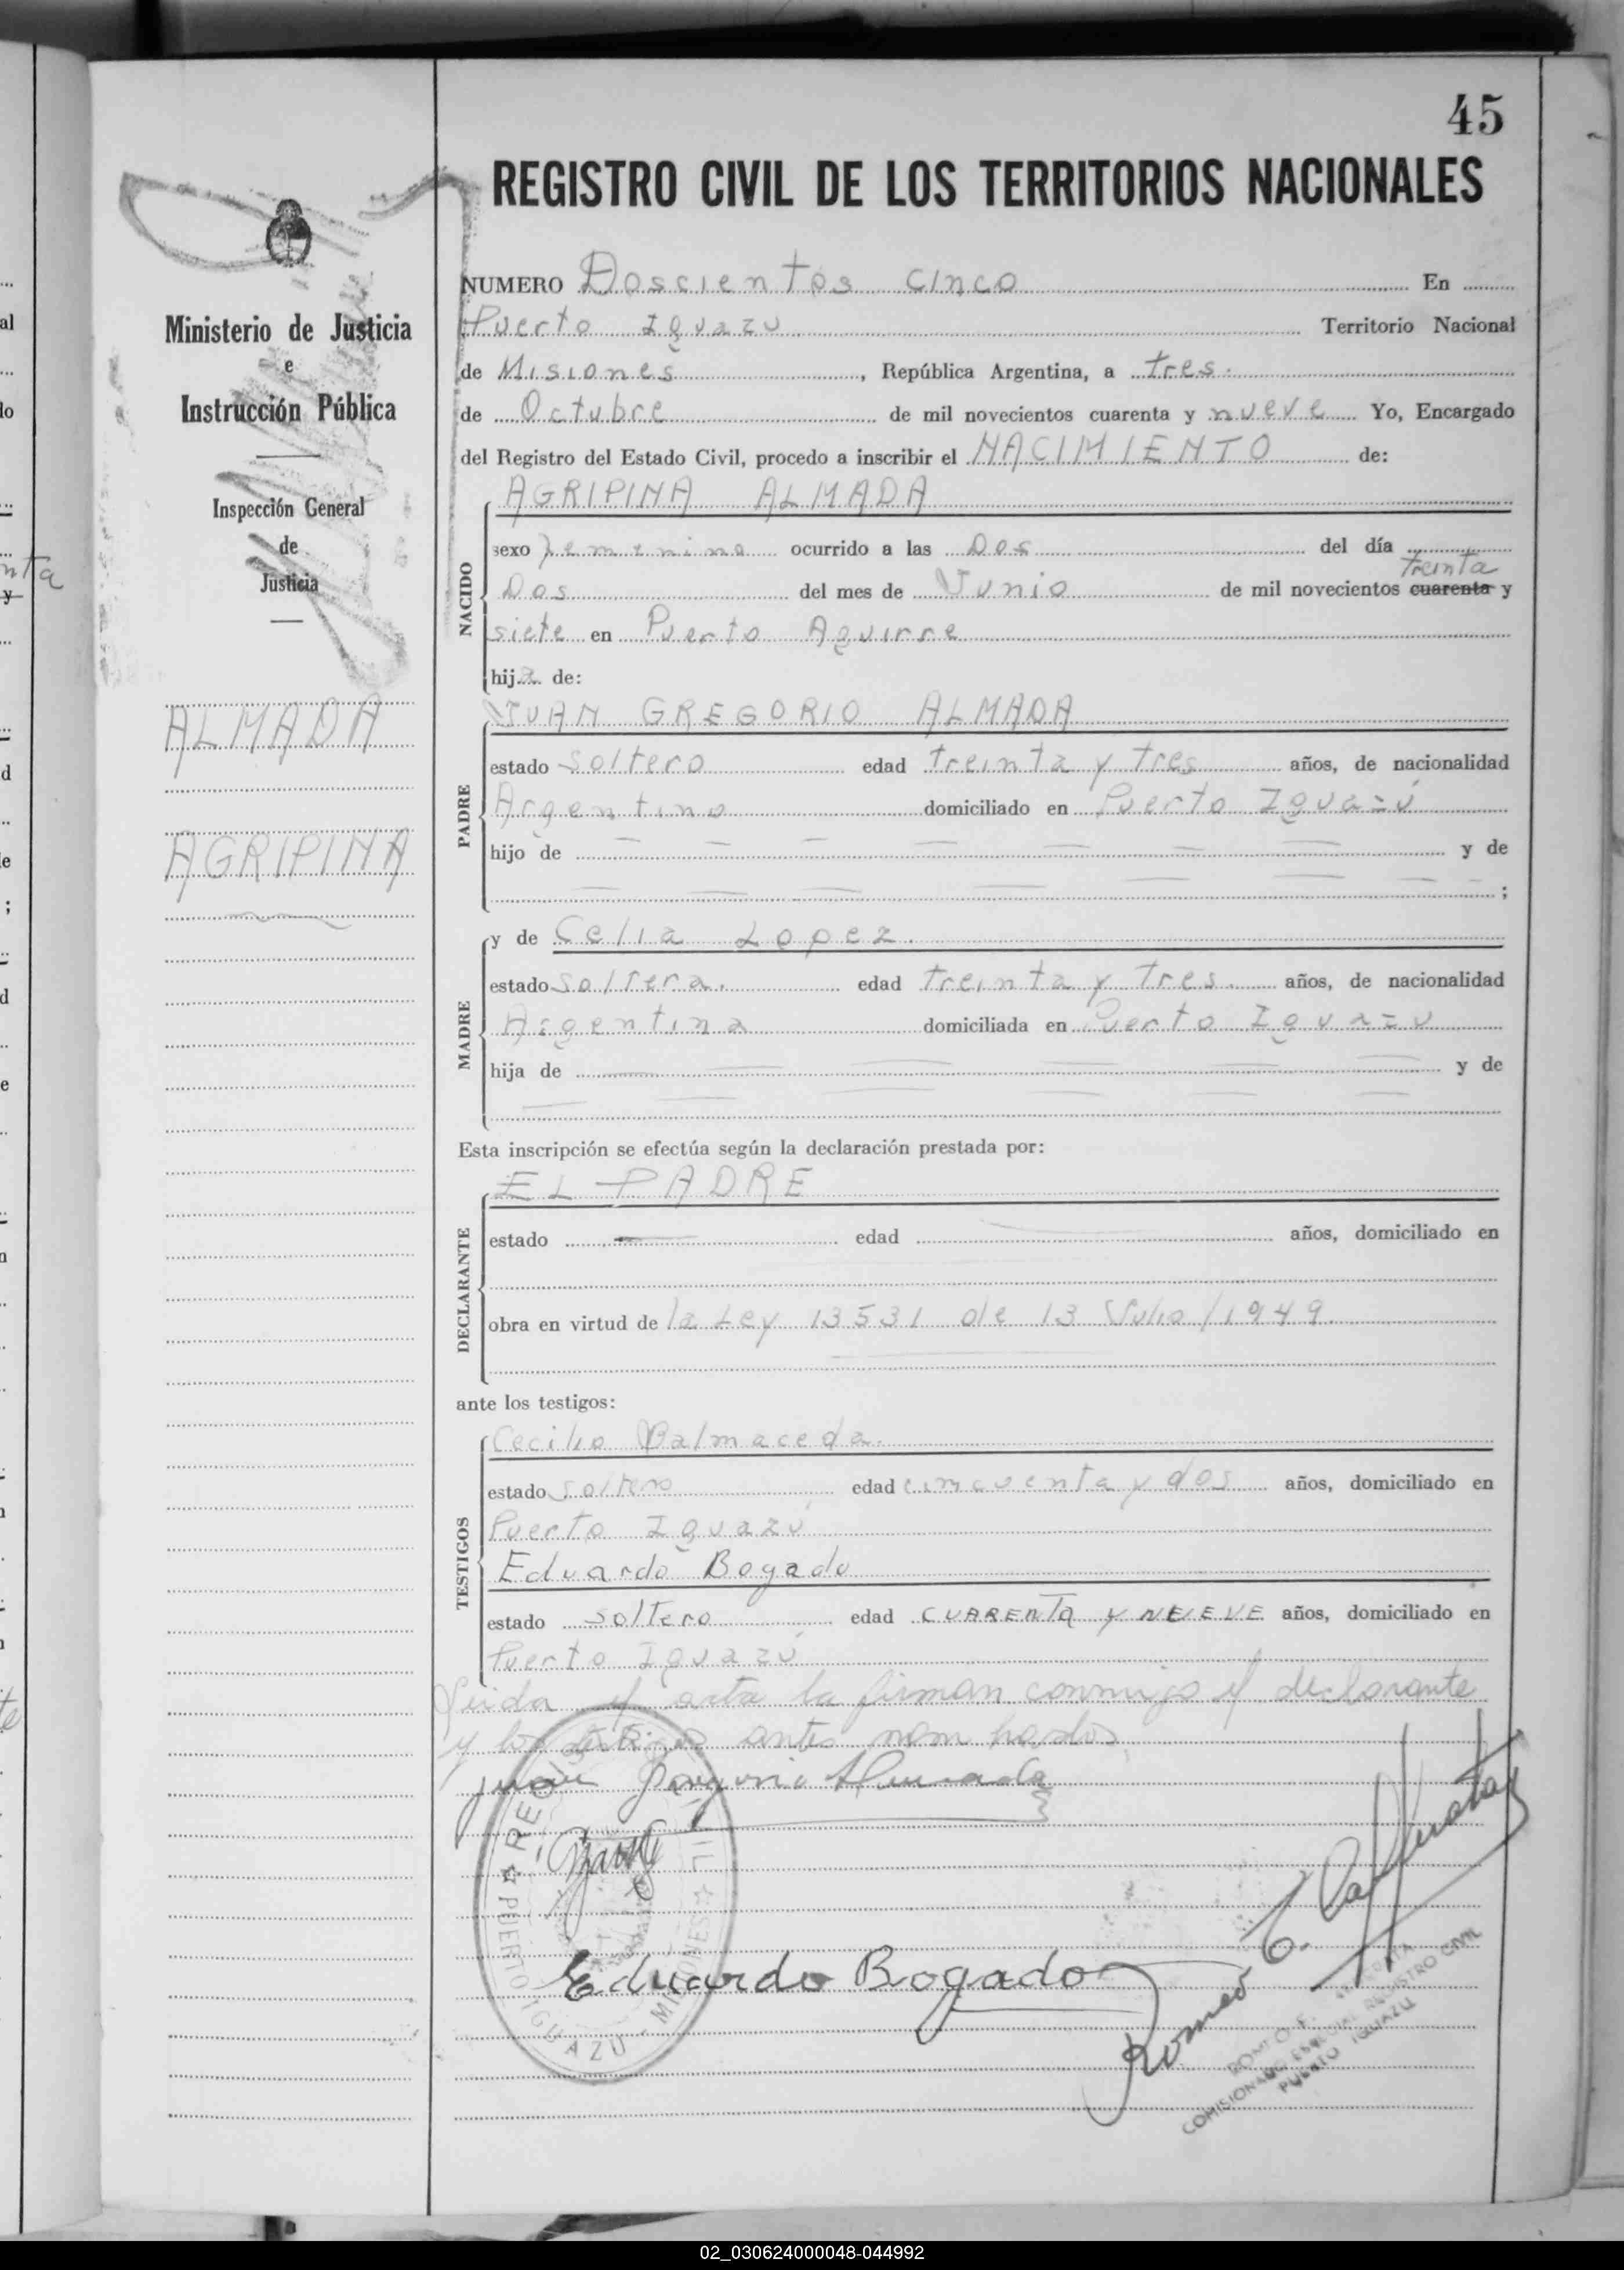 45
REGISTRO CIVIL DE LOS TERRITORIOS NACIONALES
Ministerio de Justicia
e
Instrucción Pública
Inspección General
de
Justicia
ALMADA
AGRIPINA
NUMERO Doscientos cinco En
Puerto Iguazú Territorio Nacional
de Misiones, República Argentina, a tres.
de Octubre de mil novecientos cuarenta y nueve Yo, Encargado
del Registro del Estado Civil, procedo a inscribir el NACIMIENTO de:
AGRIPINA ALMADA
NACIDO
sexo femenino ocurrido a las Dos del día
treinta
Dos del mes de Junio de mil novecientos cuarenta y
siete en Puerto Aguirre
hija de:
JUAN GREGORIO ALMADA
PADRE
estado soltero edad treinta y tres años, de nacionalidad
Argentino domiciliado en Puerto Iguazú
hijo de y de
;
MADRE
y de Celia Lopez.
estado soltera. edad treinta y tres. años, de nacionalidad
Argentina domiciliada en Puerto Iguazu
hija de y de
Esta inscripción se efectúa según la declaración prestada por:
EL PADRE
DECLARANTE
estado edad años, domiciliado en
obra en virtud de la Ley 13531 de 13 Julio/1949.
ante los testigos:
TESTIGOS
Cecilio Balmaceda.
estado soltero edad cincuenta y dos años, domiciliado en
Puerto Iguazú
Eduardo Bogado
estado soltero edad CUARENTA Y NEIEVE años, domiciliado en
Puerto Iguazú
Leida el acta la firman conmigo el declarante
y los testigos antes nombrados
Juan Gregorio Almada
Eduardo Bogado
Romeo E.
REGISTRO CIVIL
PUERTO IGUAZU - MISIONES
COMISIONADO ESPECIAL REGISTRO CIVIL
PUERTO IGUAZU
02_030624000048-044992